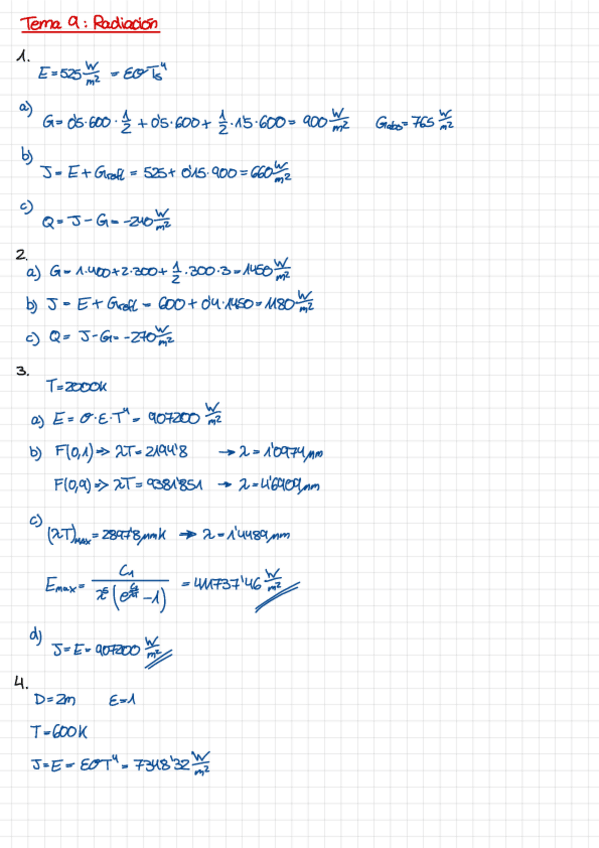 Tema 9: Radiación
1.
E = 525 W/m² = εσTs⁴
a)
G = 0'5·600·1/2 + 0'5·600 + 1/2·1'5·600 = 900 W/m² Gabs = 765 W/m²
b)
J = E + Grefl = 525 + 0'15·900 = 660 W/m²
c)
Q = J - G = -240 W/m²
2.
a) G = 1·400 + 2·300 + 1/2·300·3 = 1450 W/m²
b) J = E + Grefl = 600 + 0'4·1450 = 1180 W/m²
c) Q = J - G = -270 W/m²
3.
T = 2000K
a) E = σ·ε·T⁴ = 907200 W/m²
b) F(0,1) => λT = 2194'8 → λ = 1'0974 μm
F(0,9) => λT = 9381'851 → λ = 4'6909 μm
c)
(λT)max = 2897'8 μmK → λ = 1'4489 μm
Emax = C₁ / λ⁵(e^(C₂/λT) - 1) = 411737'46 W/m²
d)
J = E = 907200 W/m²
4.
D = 2m ε = 1
T = 600K
J = E = εσT⁴ = 7348'32 W/m²